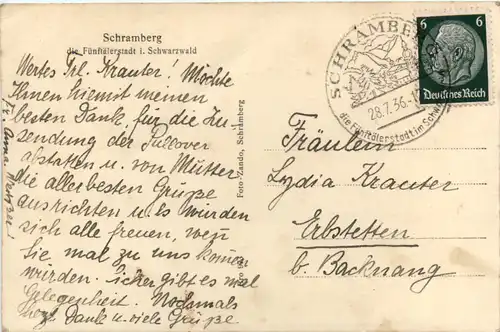 Schramberg
die Fünftälerstadt i. Schwarzwald
Wertes Frl. Krauter! Möchte
Ihnen hiemit meinen
besten Dank für die Zu-
sendung der Pullover
abstatten u. von Mutter
die allerbesten Grüße
ausrichten u. Es würden
sich alle freuen, wen
Sie mal zu uns kommen
würden. Sicher gibt es mal
Gelegenheit. Nochmals
hrzl. Dank u. viele Grüße.
Fr. Anna
Foto-Zando, Schramberg
SCHRAMBE
28.7.36
die Fünftälerstadt im Schw
6 6
Deutsches Reich
Fräulein
Lydia Krauter
Erbstetten
b. Backnang